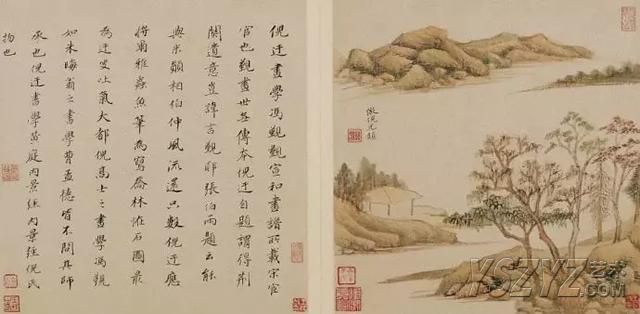 倪迂畫學馮覲覲宣和畫譜所載宋宦
官也覲畫世無傳本倪迂自題謂得荆
關遺意豈諱言覲耶張伯雨題云能
與米顛相伯仲風流遠只數倪迂應
將爾雅蟲魚筆為寫喬林恠石圖最
為迂叟吐氣大都倪高士之畫學馮覲
如朱晦翁之書學曹孟德皆不問其師
承也倪迂書學黃庭內景經內景經倪氏
物也
倣倪元鎮